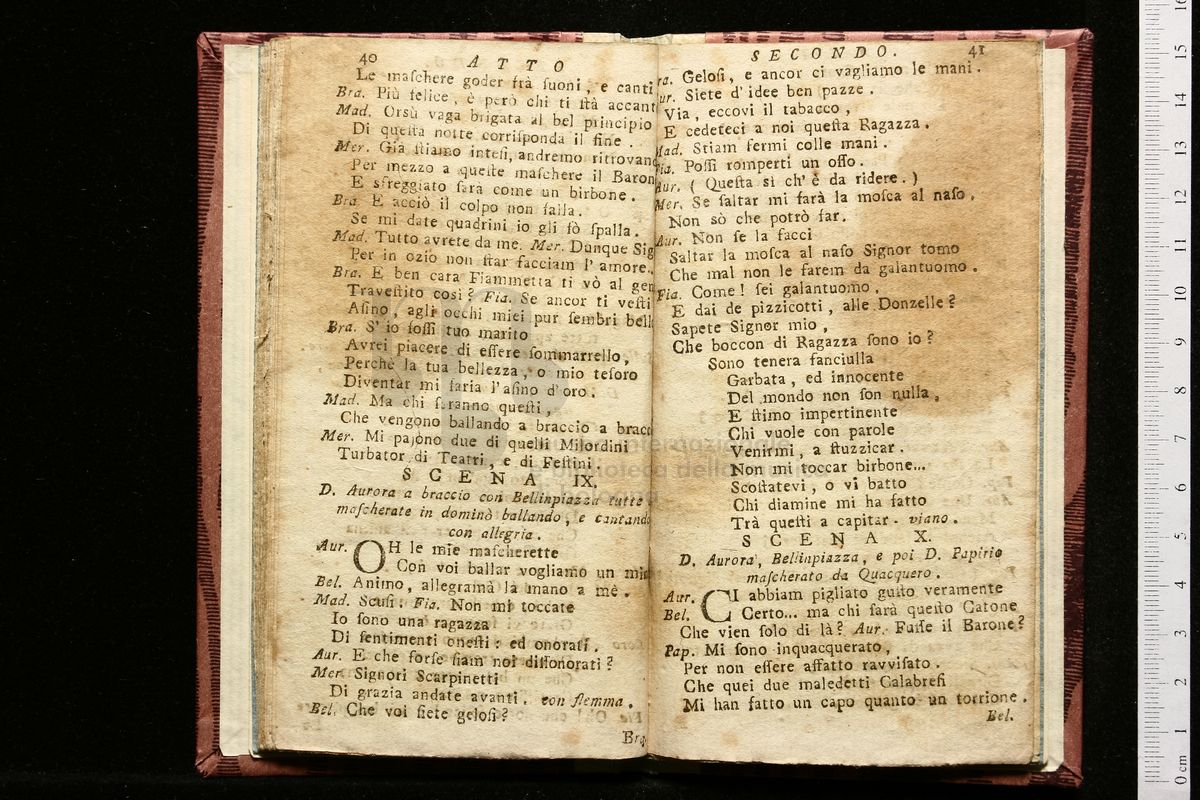 40 ATTO
Le maſchere goder frà ſuoni, e canti
Bra. Più felice, è però chi ti ſtà accant
Mad. Orsù vaga brigata al bel principio
Di queſta notte corriſponda il fine.
Mer. Già ſtiamo inteſi, andremo ritrovand
Per mezzo a queſte maſchere il Baron
E sfreggiato ſarà come un birbone.
Bra. E acciò il colpo non falla.
Se mi date quadrini io gli fò ſpalla.
Mad. Tutto avrete da me. Mer. Dunque Sig
Per in ozio non ſtar facciam l'amore..
Bra. E ben cara Fiammetta ti vò al gen
Traveſtito così? Fia. Se ancor ti veſti
Aſino, agli occhi miei pur ſembri bell
Bra. S'io foſſi tuo marito
Avrei piacere di eſſere ſommarrello,
Perchè la tua bellezza, o mio teſoro
Diventar mi faria l'aſino d'oro.
Mad. Ma chi ſaranno queſti,
Che vengono ballando a braccio a bracc
Mer. Mi pajono due di quelli Milordini
Turbator di Teatri, e di Feſtini.
SCENA IX.
D. Aurora a braccio con Bellinpiazza tutte
maſcherate in dominò ballando, e cantando
con allegria.
Aur. OH le mie maſcherette
Con voi ballar vogliamo un min
Bel. Animo, allegrama la mano a me.
Mad. Scuſi: Fia. Non mi toccate
Io ſono una ragazza
Di ſentimenti oneſti: ed onorati.
Aur. E che forſe ſiam noi diſſonorati?
Mer. Signori Scarpinetti
Di grazia andate avanti. con flemma.
Bel. Che voi ſiete geloſi?
Bra.
SECONDO. 41
ra. Geloſi, e ancor ci vagliamo le mani.
ur. Siete d'idee ben pazze.
Via, eccovi il tabacco,
E cedeteci a noi queſta Ragazza.
Mad. Stiam fermi colle mani.
Fia. Poſſi romperti un oſſo.
Aur. (Queſta sì ch'è da ridere.)
Mer. Se ſaltar mi farà la moſca al naſo,
Non sò che potrò far.
Aur. Non ſe la facci
Saltar la moſca al naſo Signor tomo
Che mal non le farem da galantuomo.
Fia. Come! ſei galantuomo,
E dai de pizzicotti, alle Donzelle?
Sapete Signor mio,
Che boccon di Ragazza ſono io?
Sono tenera fanciulla
Garbata, ed innocente
Del mondo non ſon nulla,
E ſtimo impertinente
Chi vuole con parole
Venirmi, a ſtuzzicar.
Non mi toccar birbone...
Scoſtatevi, o vi batto
Chi diamine mi ha fatto
Trà queſti a capitar. viano.
SCENA X.
D. Aurora, Bellinpiazza, e poi D. Papirio
maſcherato da Quacquero.
Aur. CI abbiam pigliato guſto veramente
Bel. Certo... ma chi ſarà queſto Catone
Che vien ſolo di là? Aur. Fuſſe il Barone?
Pap. Mi ſono inquacquerato,
Per non eſſere affatto ravviſato.
Che quei due maledetti Calabreſi
Mi han fatto un capo quanto un torrione.
Bel.